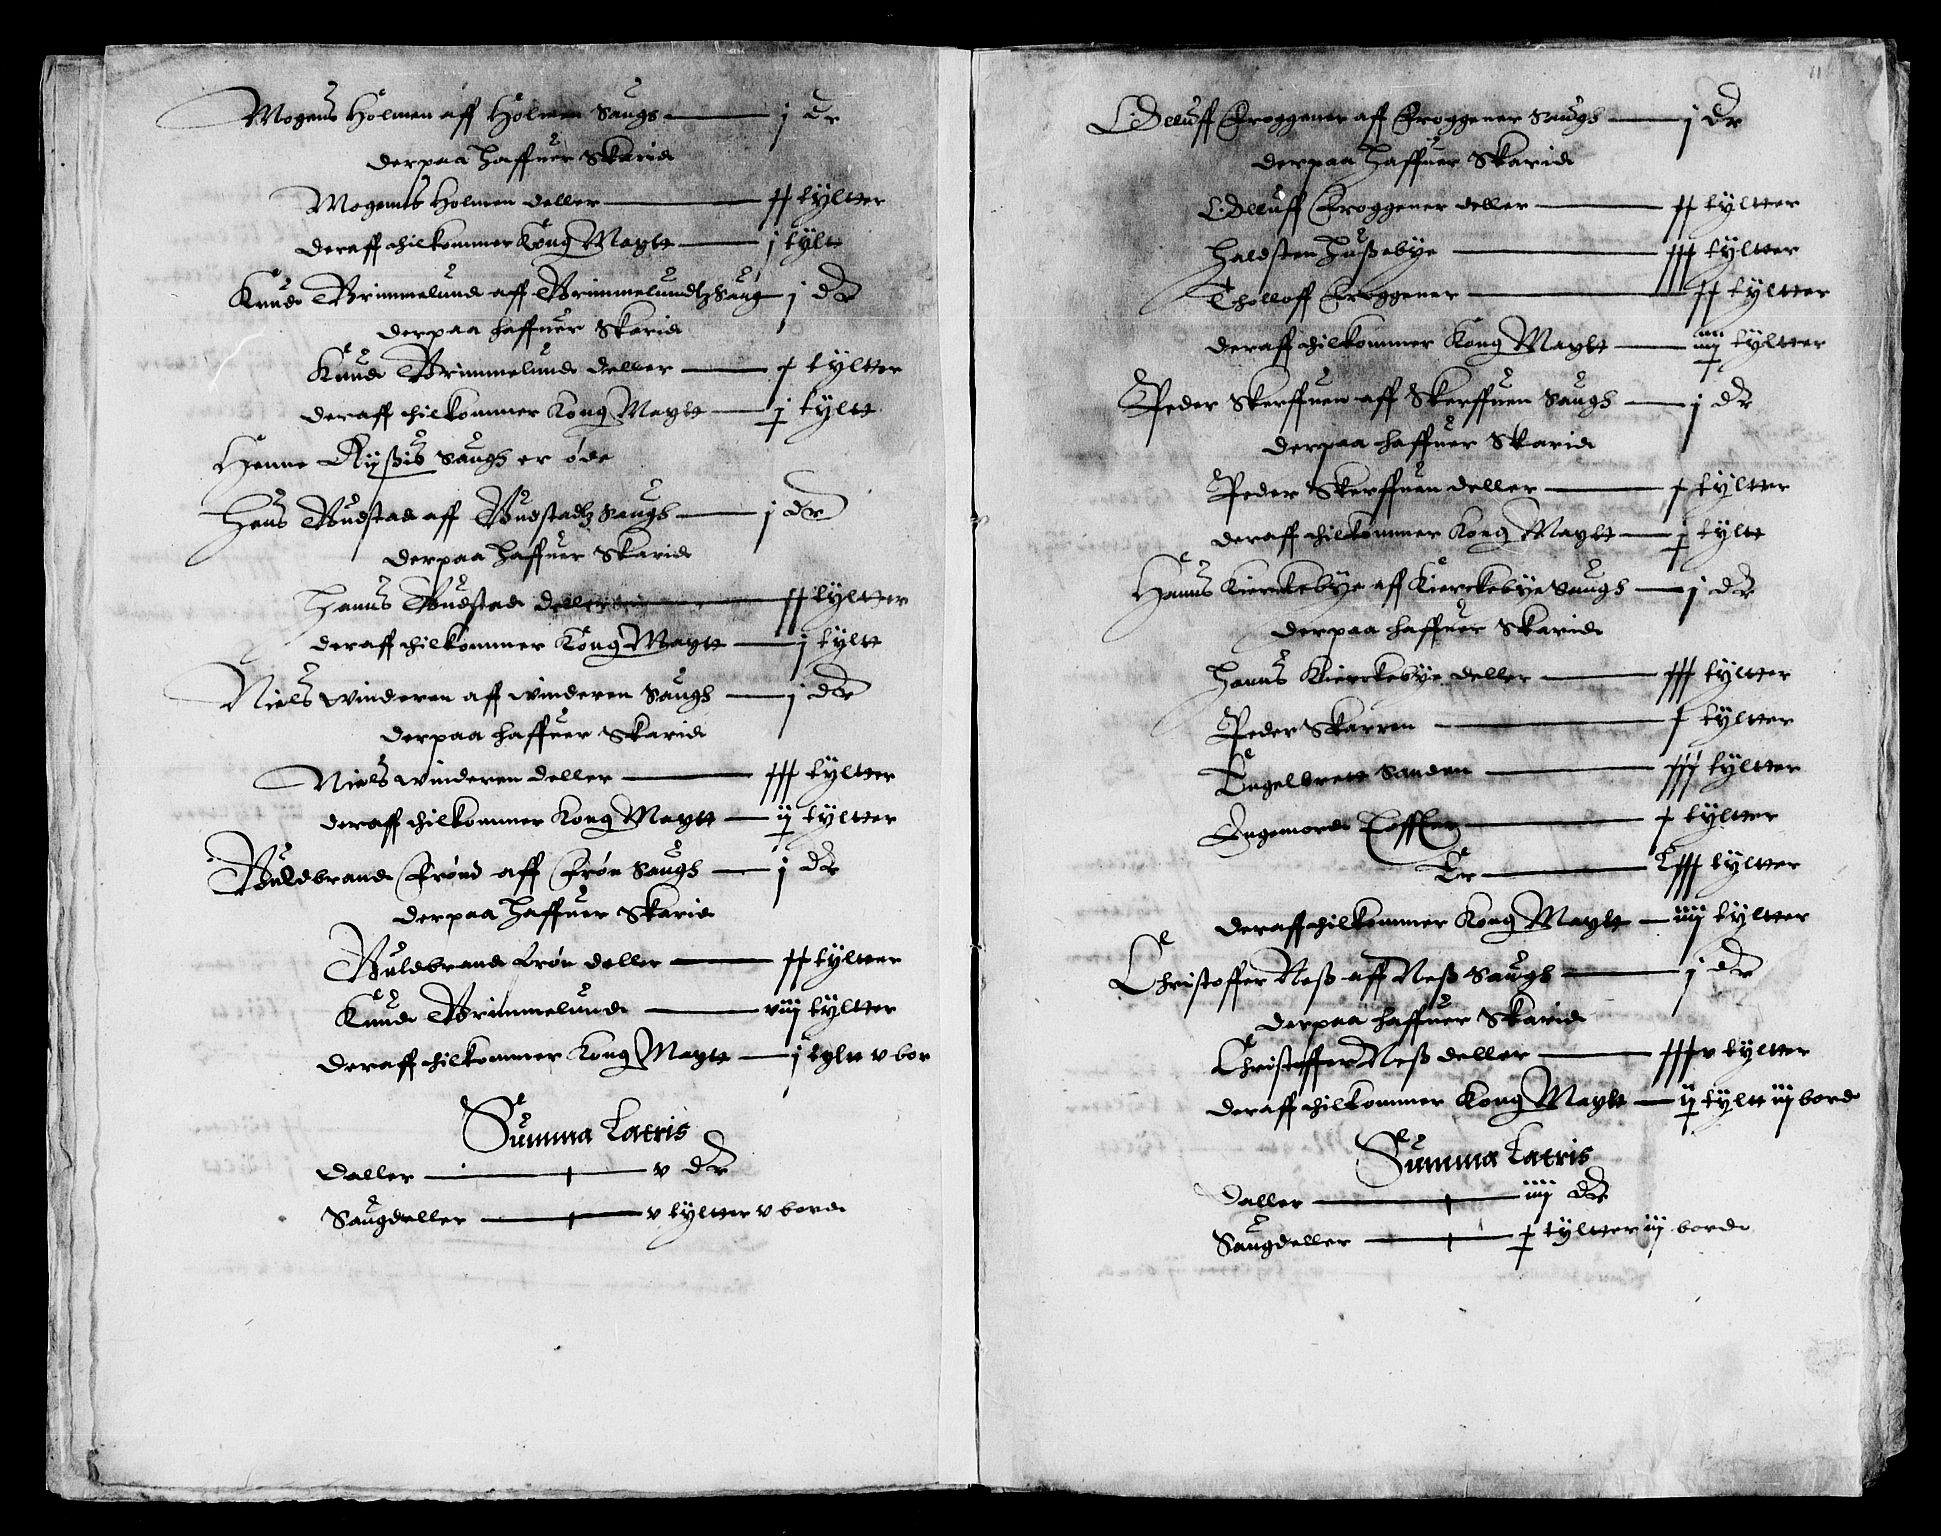 Mogens Holmen aff Holmen Saugs — j dr
derpaa haffuer Skarid
Mogenns Holmen deller — xx tÿltter
deraff thilkommer Kong Maÿtt — j tÿlt
Knud Brimmelund aff Brimmelundtz Saug — j dr
derpaa haffuer Skarid
Knud Brimmelund deller — x tÿltter
deraff thilkommer Kong Maÿtt — j tÿltt
Henne Rÿssis Saugh er øde
Hans Budstad aff Budstadtz Saugh — j dr
derpaa haffuer Skarid
Hanns Budstad deller — xx tÿltter
deraff thilkommer Kong Maÿtt — j tÿltt
Niels winderen aff winderen Saugh — j dr
derpaa haffuer Skarid
Niels winderen deller — xxx tÿltter
deraff thilkommer Kong Maÿtt — ij tÿltter
Guldbrand Frønd aff Frøn Saugh — j dr
derpaa haffuer Skarid
Guldbrand Frøn deller — xx tÿltter
Knud Brimmelund — viiij tÿltter
deraff thilkommer Kong Maÿtt — j tyltt v bor
Summa Latris
Daller — v dr
Saugdeller — v tÿltter v bord
11
Olluff Froggener aff Froggener Saugh — j dr
derpaa haffuer Skarid
Olluff Froggener deller — xx tÿltter
Haldsten Hussebÿe — xxx tÿltter
Tholloff Froggener — xx tÿltter
deraff thilkommer Kong Maÿtt — tÿltter
Peder Skerffuen aff Skerffuen Saugh — j dr
derpaa haffuer Skarid
Peder Skerffuen deller — x tÿltter
deraff thilkommer Kong Maÿtt — j tÿltt
Hanns Kierckebÿe aff Kierckebÿe Saugh — j dr
derpaa haffuer Skarid
Hanns Kierckebÿe deller — xxx tÿltter
Peder Skarren — x tÿltter
Engelbrett Sanden — xxx tÿltter
Angemord — x tÿltter
Er — Lxxx tÿltter
deraff thilkommer Kong Maÿtt — iiij tÿltter
Christoffer Ness aff Ness Saugh — j dr
derpaa haffuer Skarid
Christoffer Ness deller — xxxv tÿltter
deraff thilkommer Kong Maÿtt — ij tÿltt iij bord
Summa Latris
Daller — iiij dr
Saugdeller — x tÿltter iij bord